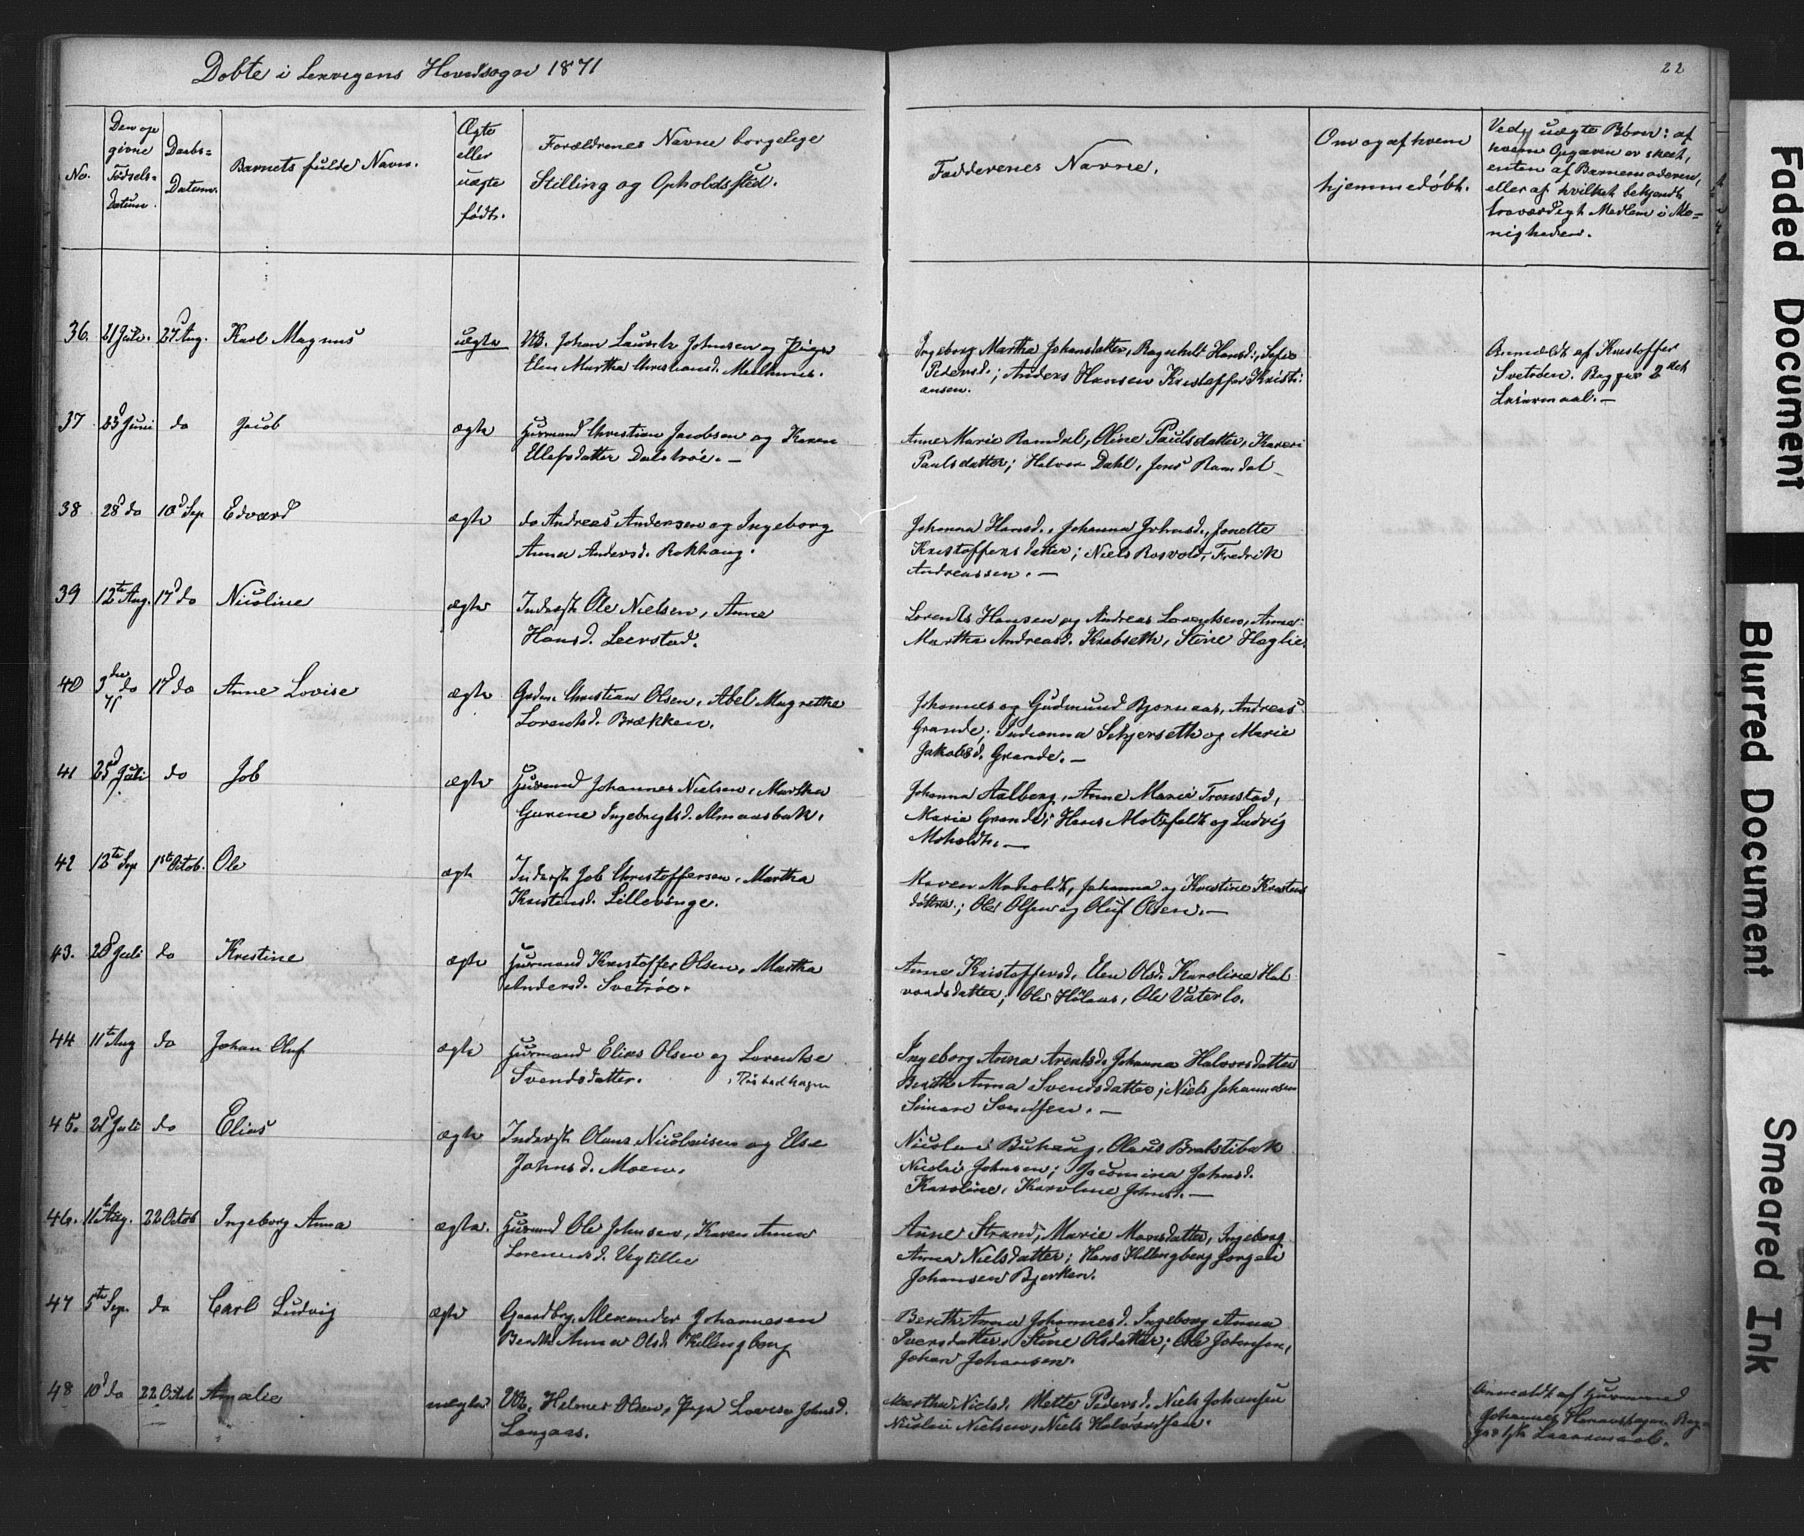 Døbte i Lexvigens Hovedsogn 1871
22
No.
Den op
givne
Fødsels-
datum.
Daabs-
Datum.
Barnets fulde Navn.
Ægte
eller
uægte
født.
Forældrenes Navne borgelige
Stilling og Opholdssted.
Fadderenes Navne.
Om og af hvem
hjemmedøbt.
Ved uægte Børn: af
hvem Opgaven er skeet,
enten af Barnemoderen,
eller af hvilket bekjendt
troværdigt Medlem i Me-
nigheden.
36. 21 Juli. 27 Aug. Karl Magnus uægte Johan Lauritz Johnsen og Pige
Elen Martha Christiansd.
Ingeborg Martha Johansdatter, Ragnhild Hansd., Sofie
Pedersd.; Anders Hansen Kristoffer Kristi-
ansen.
Anmeldt af Kristoffer
Svetrøen. Begges 2det
Leiermaal.
37 23 Juni do Jacob ægte Gurmand Christian Jacobsen og Karen
Ellefsdatter Dalstrøe.
Anne Marie Ramdal, Oline Paulsdatter, Karen
Paulsdatter; Halvor Dahl, Jens Ramdal
38 28 do 10 Sep Edvard ægte do Andreas Andersen og Ingeborg
Anna Andersd. Rokhaug.
Johanna Hansd., Johanna Johnsd., Jonette
Kristoffersdatter; Niels Rosvold, Fredrik
Andreassen.
39 12te Aug. 17 do Nicoline ægte Inderst Ole Nielsen, Anne
Hansd. Leerstad.
Lorents Hansen og Andreas Lorentsen, Anne
Martha Andreasd. Krabseth, Stine Haglie.
40 3die do 71 17 do Anne Lovise ægte Grdm. Christian Olsen, Abel Magrethe
Lorentsd. Brækken.
Johannes og Gudmund Bjørnaas, Andreas
Grande; Indianna Schjerseth og Marie
Jakobsd. Grande.
41 25 Juli do Job ægte Gurmand Johannes Nielsen, Martha
Gurine Ingebrigtsd. Almaasbak.
Johanna Aalberg, Anne Marie Tronstad,
Marie Grande; Hans Moltzfeldt og Ludvig
Moholdt.
42 12te Sep 1ste Octob. Ole ægte Inderst Job Christoffersen, Martha
Kristensd. Lillevinge.
Maren Moholdt, Johanna og Kristine Kristens
døttre; Ole Olsen og Oluf Olsen.
43. 28 Juli do Kristine ægte Gurmand Kristoffer Olsen, Martha
Andersd. Svetrøe.
Anne Kristoffersd, Elen Olsd. Karoline Hal
vorsdatter; Ole Hølaas, Ole Vaterlo.
44 11te Aug do Johan Oluf ægte Gurmand Elias Olsen og Lorentse
Svendsdatter.
Ingeborg Anna Arentsd, Johanna Halvorsdatter
Berith Anna Svendsdatter; Niels Johannesen
Simon
45. 21 Juli do Elias ægte Inderst Olaus Nicolaisen og Else
Johnsd. Moen.
Nicolai Buhaug, Olaus Brattbak
Nicolai Johnsen; Jacomina Johnsd.
Karoline, Karoline Johnsd.
46. 11te Aug. 22 Octob Ingeborg Anna ægte. Gurmand Ole Johnsen, Karen Anna
Lorentsd. Vegtillie
Anne Strand, Marie Monsdatter, Ingeborg
Anna Nielsdatter; Hans Hellingberg Jørgen
Johansen Bjerken.
47 5te Sep. do Carl Ludvig ægte Gaardbrg. Alexander Johannesen
Berith Anna Olsd. Hellingberg
Berith Anna Johannesd. Ingeborg Anna
Iversdatter, Stine Olsdatter; Ole Johnsen,
Johan Johansen.
48 10 do 22 Octob Amalie uægte Helmer Olsen, Pige Lovise Johnsd.
Langaas.
Martha Nielsd. Mette Pedersd. Niels Johansen
Nicolai Nielsen, Niels Halvorsen.
Anmeldt af Gurmand
Johannes
Leiermaal.
Faded Document
Blurred Document
Smeared Ink